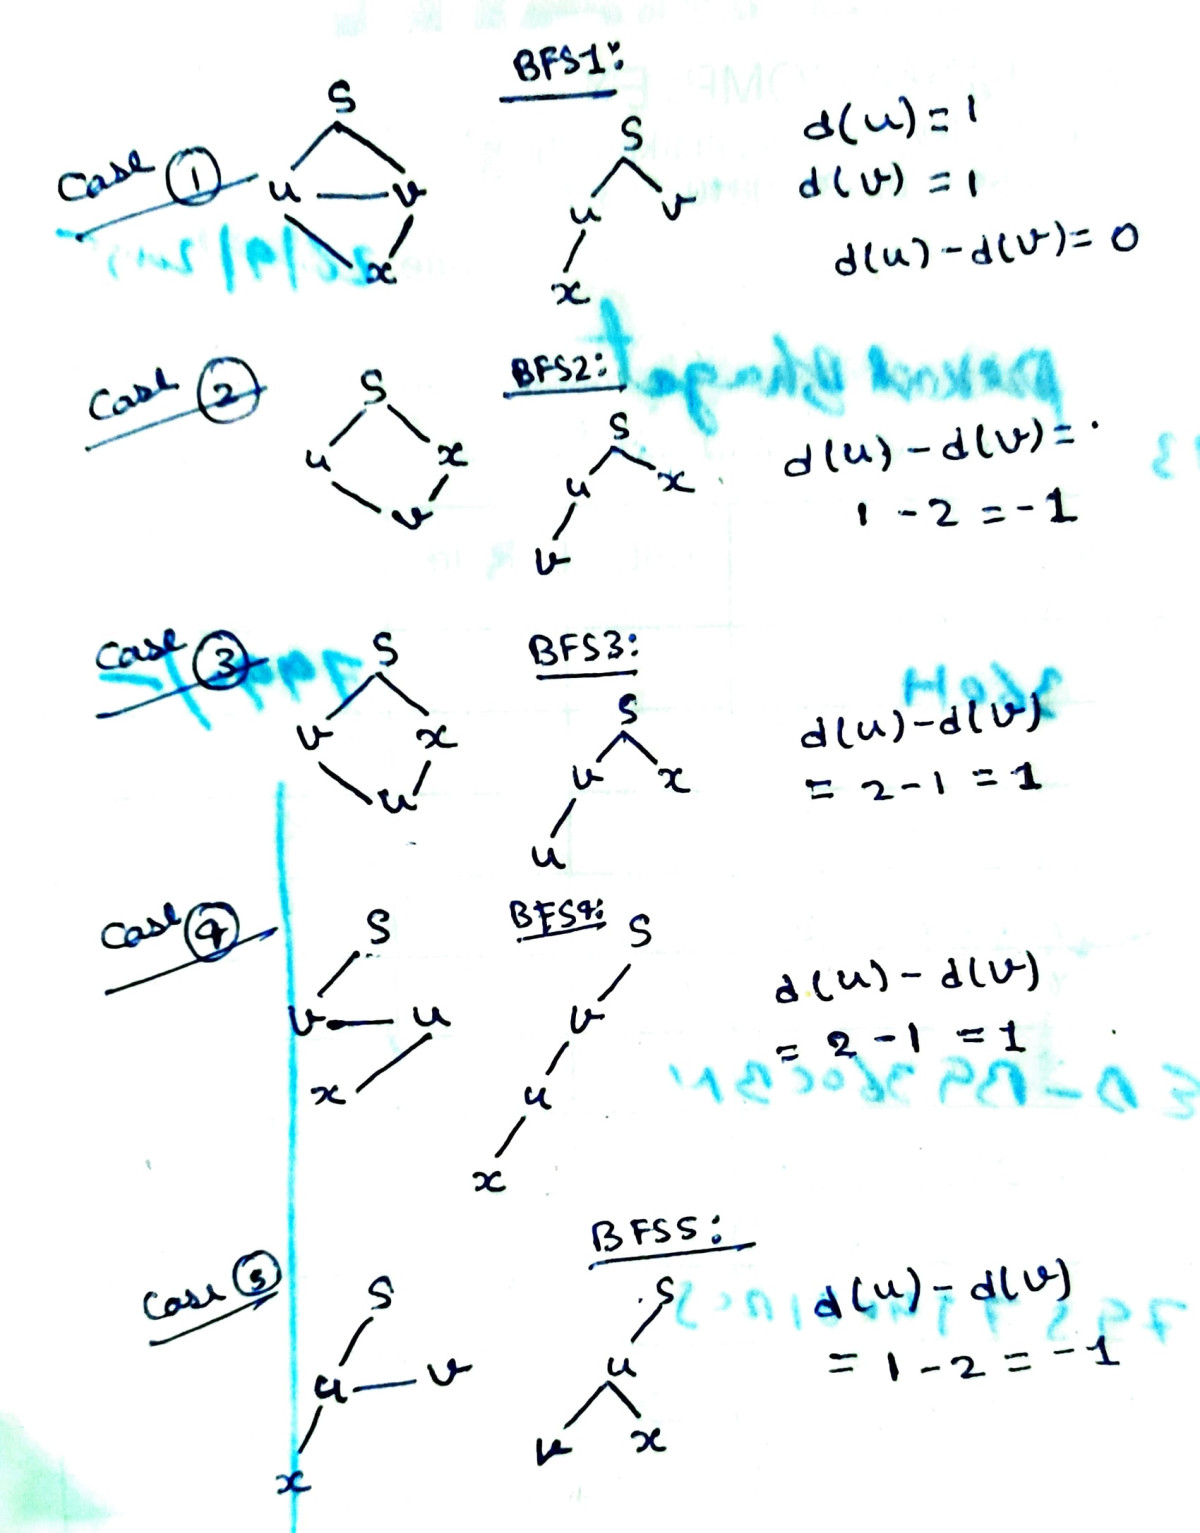 BFS1:
S
Case 1
u v
x
S
u v
x
d(u) = 1
d(v) = 1
d(u) - d(v) = 0
Case 2
S
u x
v
BFS2:
S
u x
v
d(u) - d(v) =
1 - 2 = -1
Case 3
S
v x
u
BFS3:
S
v x
u
d(u) - d(v)
= 2 - 1 = 1
Case 4
S
v u
x
BFS4:
S
v
u
x
d(u) - d(v)
= 2 - 1 = 1
Case 5
S
u v
x
BFS5:
S
u
v x
d(u) - d(v)
= 1 - 2 = -1